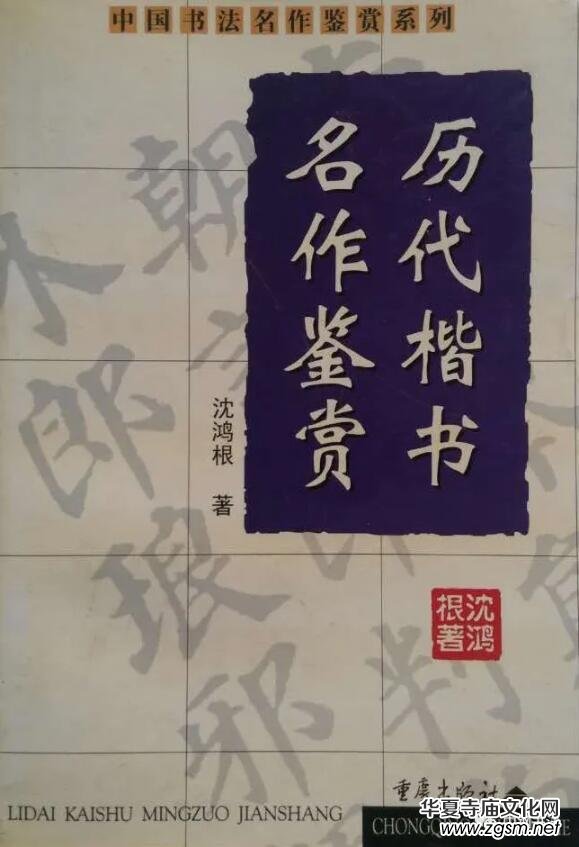 中国书法名作鉴赏系列
历代楷书
名作鉴赏
沈鸿根 著
沈鸿
根著
重庆出版社
LIDAI KAISHU MINGZUO JIANSHANG
华夏寺庙文化网
www.zgsm.net